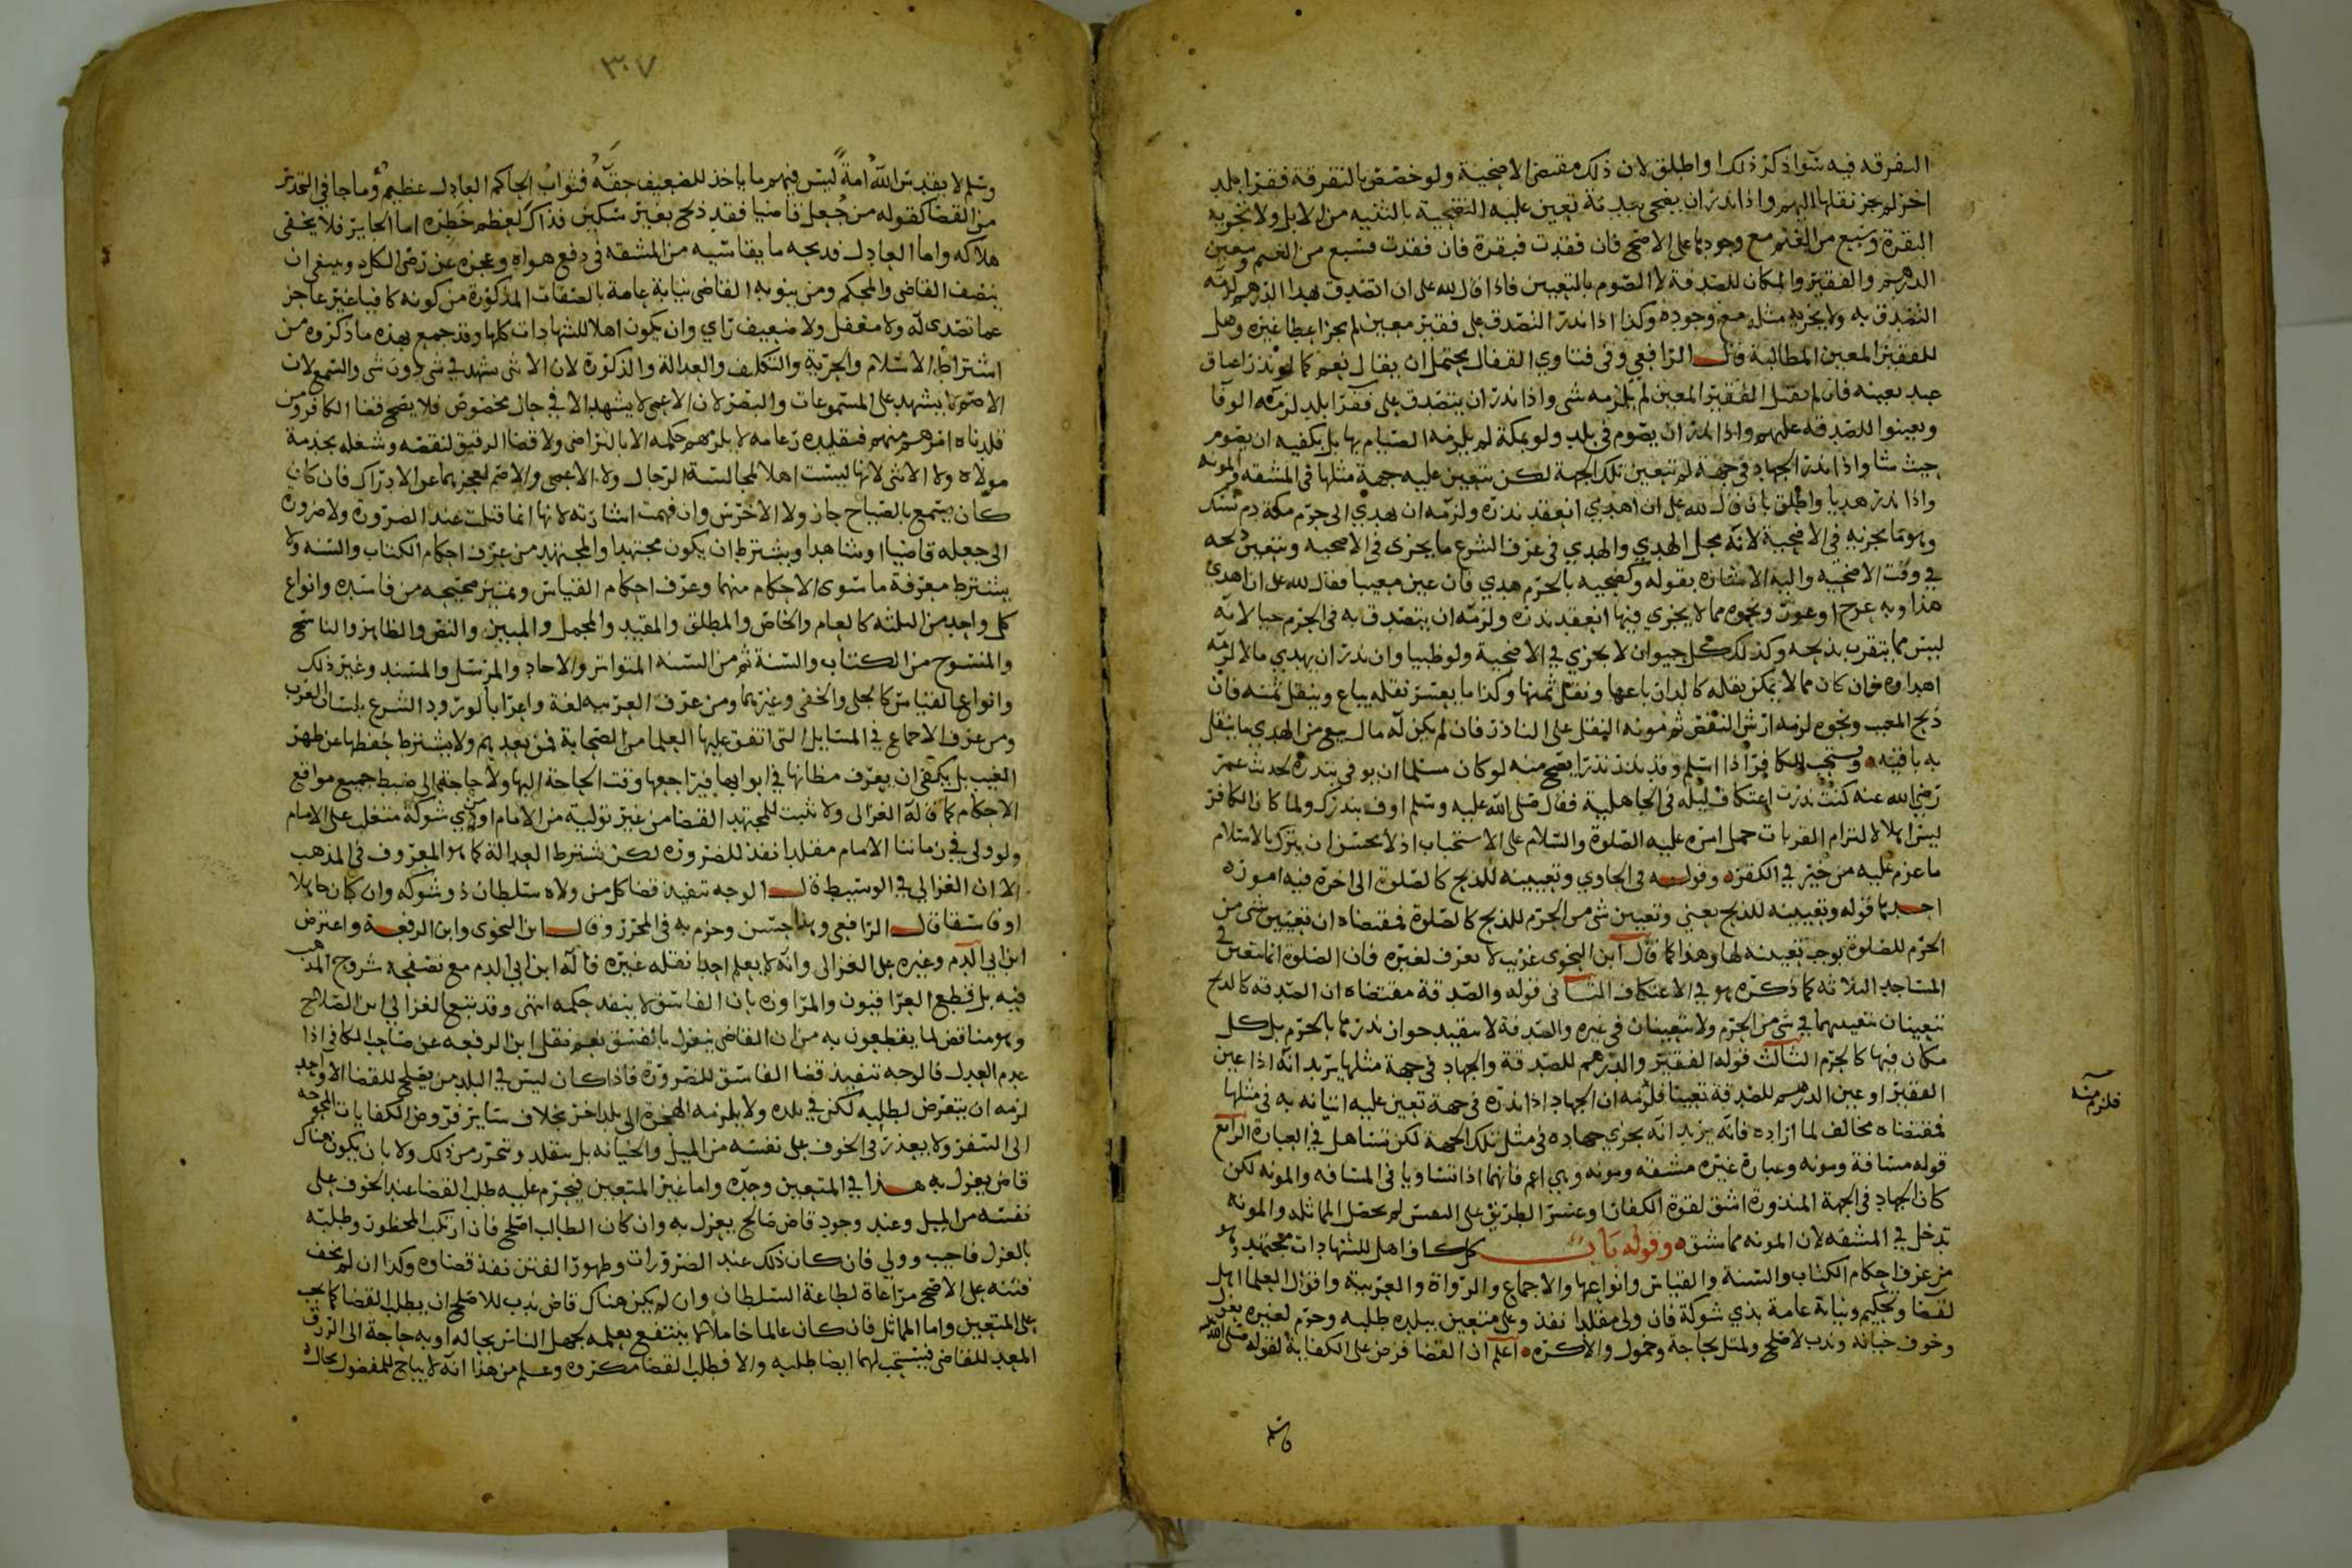 التفرقه فيه سوا ذكر ذلك او اطلق لان ذلك مقتضى الاضحية ولو خصص بالتفرقة فقرا بلد
اخر لم يجز نقلها اليهم واذا نذر ان يضحى ببدنة تعين عليه التضحية بالثنيه من الابل ولا تجزيه
البقرة وسبع من الغنم مع وجودها على الاصح فان فقدت فبقرة فان فقدت فسبع من الغنم وتعين
الدرهم والفقير والمكان للصدقة لا الصوم بالتعيين فاذا قال لله على ان اتصدق بهذا الدرهم لزمه
التصدق به ولا يجزيه مثله مع وجوده وكذا اذا نذر التصدق على فقير معين لم يجز اعطا غيره وهل
للفقير المعين المطالبة قال الرافعي وفى فتاوي القفال يحتمل ان يقال نعم كما لو نذر اعتاق
عبد بعينه فان لم يقبل الفقير المعين لم يلزمه شى واذا نذر ان يتصدق على فقرا بلد لزمه الوفا
وتعينوا للصدقة عليهم واذا نذر ان يصوم فى بلد ولو بمكة لم يلزمه الصيام بها بل يكفيه ان يصوم
حيث شا واذا نذر الجهاد فى جهة لم تتعين تلك الجهة لكن تتعين عليه جهة مثلها فى المشقه والمونه
واذا نذر هديا واطلق بان قال لله على ان اهدي انعقد نذره ولزمه ان يهدي الى حرم مكة دم نسك
وهو ما يجزيه فى الاضحية لانه محل الهدي والهدي في عرف الشرع ما يجزى فى الاضحيه ويتعين ذبحه
في وقت الاضحيه واليه الاشاره بقوله وكضحيه بالحرم هدي فان عين معيبا فقال لله على ان اهدي
هذا وبه عرج او عور ونحوه مما لا يجزي فيها انعقد نذره ولزمه ان يتصدق به فى الحرم حيا لانه
ليس مما يتقرب بذبحه وكذلك كل حيوان لا يجزي في الاضحية ولو ظبيا وان نذر ان يهدي مالا لزمه
اهداوه فان كان مما لا يمكن نقله كالدار باعها ونقل ثمنها وكذا ما يعسر نقله يباع وينقل ثمنه فان
ذبح المعيب ونحوه لزمه ارش النقص ثم مونه النقل على الناذر فان لم يكن له مال بيع من الهدي ما ينقل
به باقيه ويستحب للكافر اذا اسلم وقد نذر نذرا يصح منه لو كان مسلما ان يوفي بنذره لحديث عمر
رضي الله عنه كنت نذرت اعتكاف ليله فى الجاهلية فقال صلى الله عليه وسلم اوف بنذرك ولما كان الكافر
ليس اهلا لالتزام القربات حمل امره عليه الصلوة والسلام على الاستحباب اذ لا يحسن ان يترك بالاسلام
ما عزم عليه من خير في الكفر وقوله فى الحاوي وتعيينه للذبح كالصلوة الى اخره فيه امور
احدها قوله وتعيينه للذبح يعنى وتعيين شى من الحرم للذبح كالصلوة فمقتضاه ان تعيين شى من
الحرم للصلوة يوجب تعينه لها وهذا كما قال ابن النحوى غريب لا يعرف لغيره فان الصلوة انما تتعين في
المساجد الثلاثه كما ذكره هو في الاعتكاف الثانى قوله والصدقة مقتضاه ان الصدقه كالذبح
تتعينان بتعينهما في شى من الحرم ولا تتعينان فى غيره والصدقة لا يتقيد جواز نذرها بالحرم بل كل
مكان فيها كالحرم الثالث قوله الفقير والدرهم للصدقة والجهاد فى جهة مثلها يريد انه اذا عين
الفقير او عين الدرهم للصدقة تعينا فلزمه ان الجهاد اذا نذره فى جهة تعين عليه اتيانه به فى مثلها
فمقتضاه مخالف لما اراده فانه يريد انه يجزي جهاده فى مثل تلك الجهة لكن تساهل في العبارة الرابع
قوله مسافة ومونه وعبارة غيره مشقة ومونه وهي اعم فانهما اذا تساويا فى المسافه والمونه لكن
كان الجهاد فى الجهة المنذورة اشق لقوة الكفار او عسر الطريق على النفس لم تحصل المماثله والمونه
تدخل في المشقه لان المونه مما تشق وقوله باب كل كاف اهل للشهادات مجتهد وهو
من عرف احكام الكتاب والسنة والقياس وانواعها والاجماع والرواة والعربية واقوال العلما اهل
لقضا وتحكيم ونيابة عامة بذي شوكة فان ولى مقلدا نفذ وعلى متعين ببلده طلبه وحرم لغيره بعزل
وخوف خيانه وندب لاصلح ولمثل بحاجة وخمول والا كره اعلم ان القضا فرض على الكفاية لقوله صلى الله عليه
فلزم منه
وسلم
٣٠٧
وسلم لا يقدس الله امة ليس فيهم ما ياخذ للضعيف حقه فثواب الحاكم العادل عظيم وما جا في التحذير
من القضا كقوله من جعل قاضيا فقد ذبح بغير سكين فذاك لعظم خطره اما الجاير فلا يخفى
هلاكه واما العادل فذبحه ما يقاسيه من المشقه فى دفع هواه وعجزه عن رضى الكل وينبغى ان
يتصف القاضى والمحكم ومن ينوبه القاضى نيابة عامة بالصفات المذكورة من كونه كافيا غير عاجز
عما تصدى له ولا مغفل ولا ضعيف راي وان يكون اهلا للشهادات كلها وقد جمع بهذه ما ذكروه من
اشتراط الاسلام والحرية والتكليف والعدالة والذكورة لان الانثى تشهد في شى دون شى والسمع لان
الاصم لا يشهد على المسموعات والبصر لان الاعمى لا يشهد الا في حال مخصوص فلا يصح قضا الكافر ومن
قلدناه امرهم منهم فتقليده زعامه لا يلزمهم حكمه الا بالتراضى ولا قضا الرقيق لنقصه وشغله بخدمة
مولاه ولا الانثى لانها ليست اهلا لمجالسة الرجال ولا الاعمى والاصم لعجزهما عن الادراك فان كان
كان يسمع بالصياح جاز ولا الاخرس وان فهمت اشارته لانها انما قبلت عند الضرورة ولا ضرورة
الى جعله قاضيا او شاهدا ويشترط ان يكون مجتهدا والمجتهد من عرف احكام الكتاب والسنه ولا
يشترط معرفة ما سوى الاحكام منهما وعرف احكام القياس وتمييز صحيحه من فاسده وانواع
كل واحد من الثلثه كالعام والخاص والمطلق والمقيد والمجمل والمبين والنص والظاهر والناسخ
والمنسوخ من الكتاب والسنة ثم من السنه المتواتر والاحاد والمرسل والمسند وغير ذلك
وانواع القياس كالجلى والخفى وغيرهما ومن عرف العربيه لغة واعرابا لورود الشرع بلسان العرب
ومن عرف الاجماع في المسايل التى اتفق عليها العلما من الصحابة فمن بعدهم ولا يشترط حفظها عن ظهر
الغيب بل يكفى ان يعرف مظانها في ابوابها فيراجعها وقت الحاجة اليها ولا حاجة الى ضبط جميع مواقع
الاحكام كما قاله الغزالى ولا تثبت للمجتهد القضا من غير تولية من الامام او من ذي شوكة متغلب على الامام
ولو ولى في زماننا الامام مقلدا نفذ للضرورة لكن تشترط العدالة كما هو المعروف في المذهب
الا ان الغزالي في الوسيط قال الوجه تنفيذ قضا كل من ولاه سلطان ذو شوكه وان كان جاهلا
او فاسقا قال الرافعي وهذا حسن وجزم به فى المحرر وقال ابن النحوى وابن الرفعة واعترض
ابن ابى الدم وغيره على الغزالى وانه لا يعلم احدا نقله غيره قاله ابن ابى الدم مع تصفحه شروح المذهب
فيه بل قطع العراقيون والمراوزه بان الفاسق لا ينفذ حكمه انتهى وقد تبع الغزالي ابن الصلاح
وهو مناقض لما يقطعون به من ان القاضى ينعزل بالفسق نعم نقل ابن الرفعه عن صاحب الكافى اذا
عدم العدل فالوجه تنفيذ قضا الفاسق للضرورة فاذا كان ليس في البلد من يصلح للقضا الا واحد
لزمه ان يتعرض لطلبه لكن في بلده ولا يلزمه الهجرة الى بلد اخر بخلاف سائر فروض الكفايات المحوجه
الى السفر ولا يعذر فى الخوف على نفسه من الميل والخيانه بل يتقلد ويتحرز من ذلك ولا بان يكون هناك
قاض يعزل به هذا في المتعين وحده واما غير المتعين فيحرم عليه طلب القضا عند الخوف على
نفسه من الميل وعند وجود قاض صالح يعزل به وان كان الطالب اصلح فان ارتكب المحظور وطلبه
بالعزل فاجيب وولي فان كان ذلك عند الضرورات وظهور الفتن نفذ قضاوه وكذا ان لم يخف
فتنه على الاصح مراعاة لطاعة السلطان وان لم يكن هناك قاض ندب للاصلح ان يطلب القضا كما يجب
على المتعين واما المماثل فان كان عالما خاملا لا ينتفع بعلمه لجهل الناس بحاله او به حاجة الى الرزق
المعد للقاضى فيستحب لهما ايضا طلبه والا فطلب القضا مكروه وعلم من هذا انه لا يباح للمفضول بحال